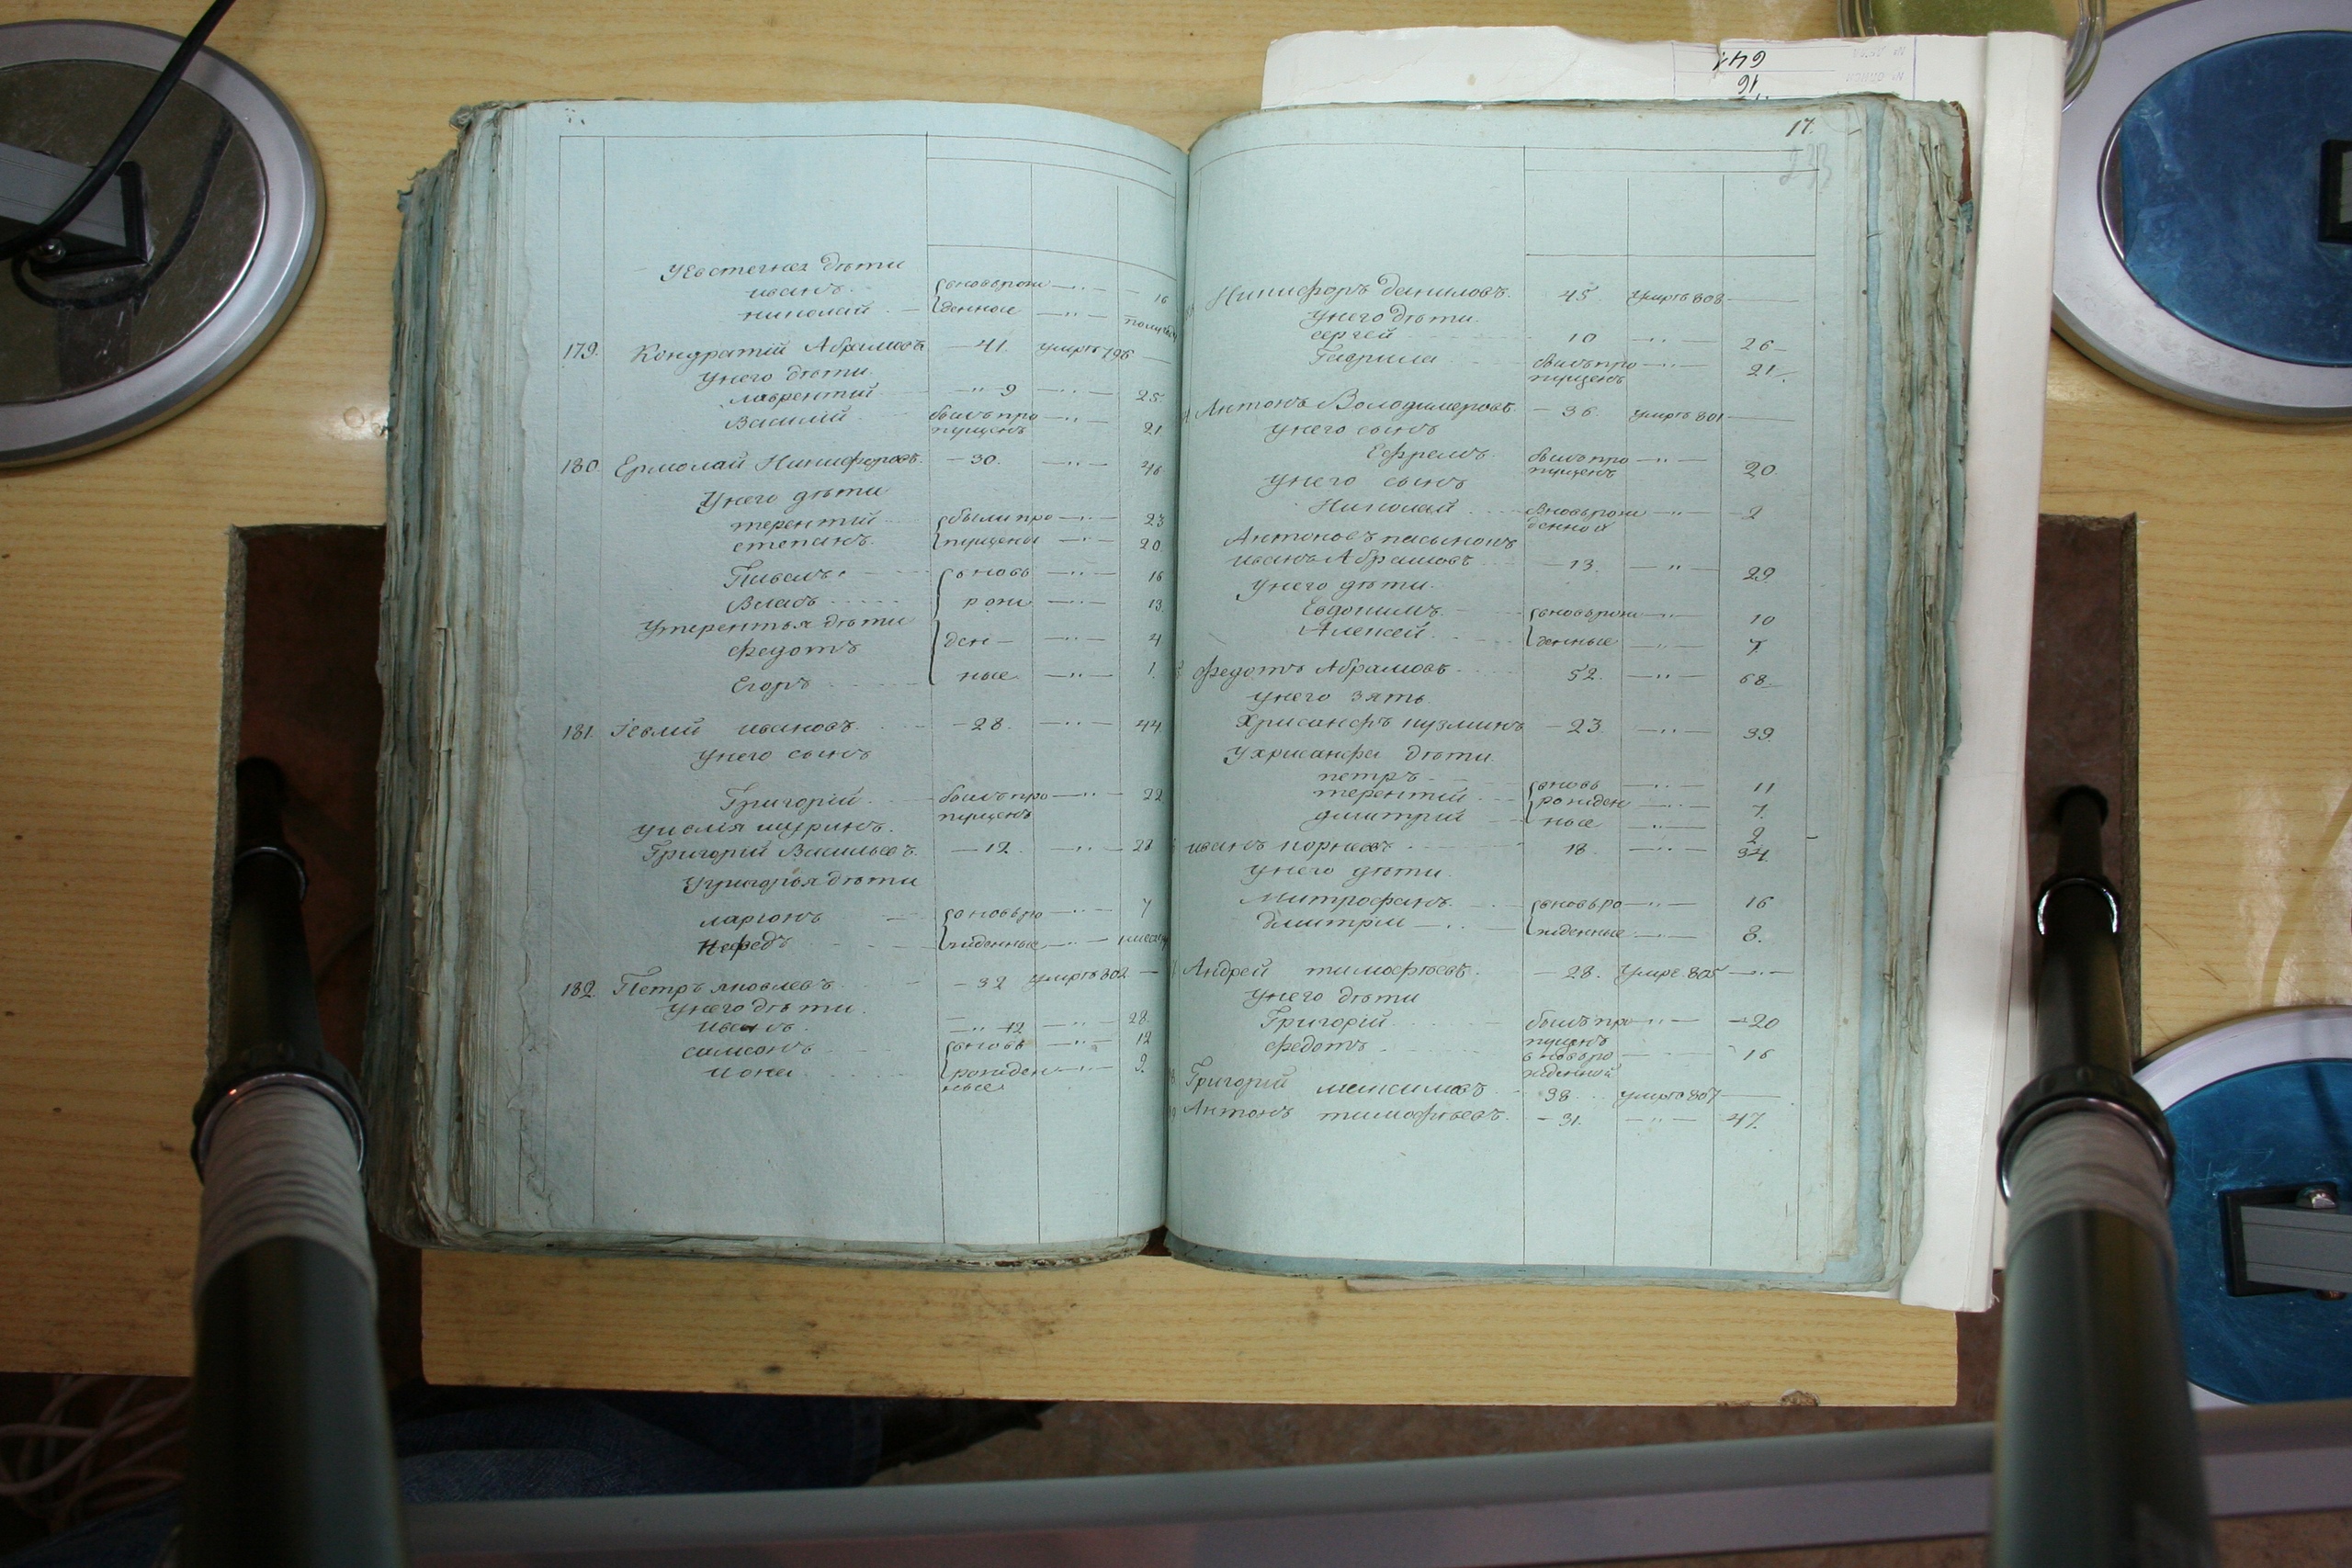 у Евстегнея дети
иванъ вновь рож — " — 16
николай денные — " — полугода
179. Кондратiй Абрамовъ — 41. умръ 796 —
у него дети
лаврентiй — " 9 — " — 25.
Василiй былъ про — " — 21
пущенъ
180. Ермолай Никифоровъ — 30. — " — 46
у него дети
терентiй были про — " — 23
степанъ пущены — " — 20
Пиванъ вновь — " — 16
Власъ рож — " — 13
у терентья дети
федотъ ден — " — 4
Егоръ ные — " — 1.
181. Iевлiй ивановъ — 28. — " — 44
у него сынъ
Григорiй былъ про — " — 22
пущенъ
у иевлiя шуринъ
Григорiй Васильевъ — 12. — " — 28
у григорья дети
ларионъ вновь ро — " — 7
Нефедъ жденные — " —
182. Петръ яковлевъ — 32 умръ 802 —
у него дети
иванъ — " 12 — " — 28.
самсонъ вновь — " — 12
иона рожден — " — 9.
ные
17.
Никифоръ даниловъ 45 умръ 808 —
у него дети
сергей 10 — " — 26 —
Гаврила былъ про — " — 21.
пущенъ
Антонъ Володимеровъ — 36. умръ 801 —
у него сынъ
Ефремъ былъ про — " — 20
пущенъ
у него сынъ
Николай вновь рож — " — 2
денной
Антоновъ пасынокъ
иванъ Абрамовъ — 13. — " — 29.
у него дети
Евдокимъ вновь рож — " — 10
Алексей денные — " — 7.
федотъ Абрамовъ 52. — " — 68.
у него зять
Хрисанфъ кузминъ — 23 — " — 39.
у хрисанфа дети
петръ вновь — " — 11
терентiй рожден — " — 7.
димитрiй ные — " — 2
иванъ корнеевъ 18. — " — 34.
у него дети
Митрофанъ вновь ро — " — 16
дмитрiй жденные — " — 8.
Андрей тимофеевъ — 28. умре. 805 — " —
у него дети
Григорiй былъ пр — " — 20
пущенъ
федотъ вновь ро — 16
жденной
Григорiй максимовъ 38 умръ 807 —
Антонъ тимофеевъ — 31. — " — 47.
641
16